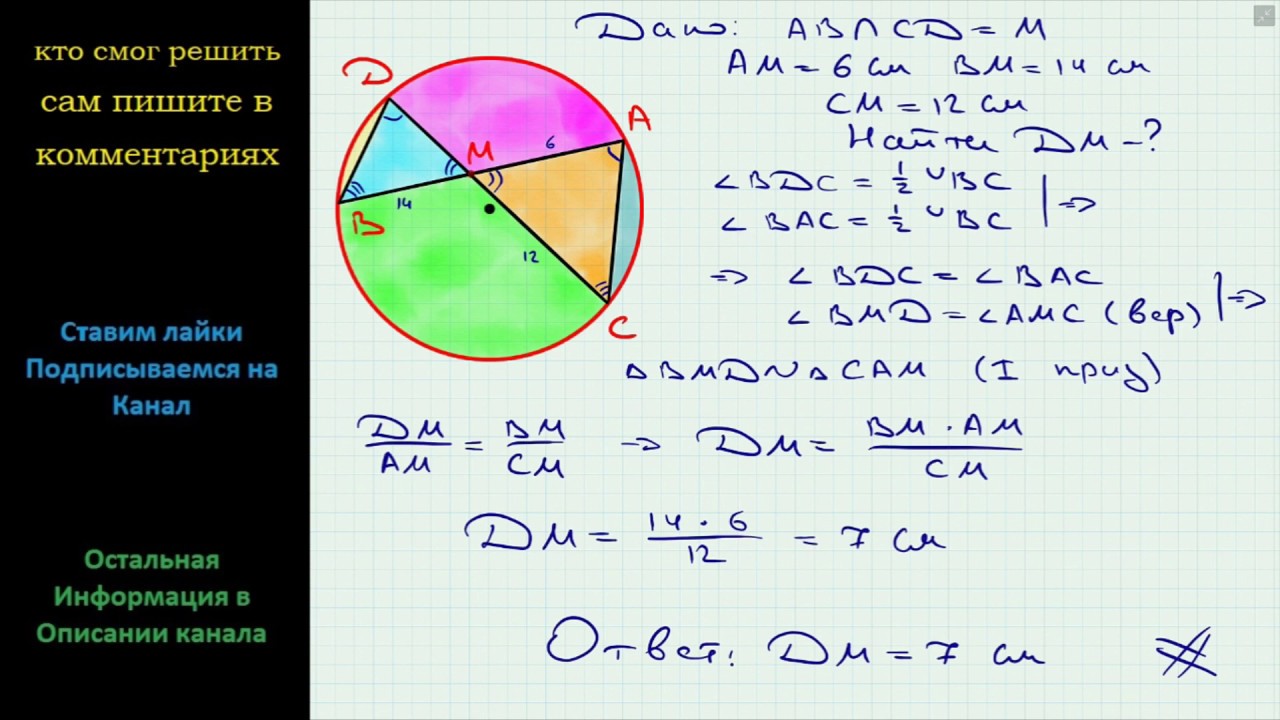 кто смог решить
сам пишите в
комментариях
Ставим лайки
Подписываемся на
Канал
Остальная
Информация в
Описании канала
D
A
M
6
14
B
12
C
Дано: AB ∩ CD = M
AM = 6 см BM = 14 см
CM = 12 см
Найти DM - ?
∠BDC = 1/2 ◡BC
∠BAC = 1/2 ◡BC | ⇒
⇒ ∠BDC = ∠BAC
∠BMD = ∠AMC (вер) | ⇒
△BMD ~ △CAM (I приз)
DM/AM = BM/CM → DM = BM · AM/CM
DM = 14 · 6/12 = 7 см
Ответ: DM = 7 см